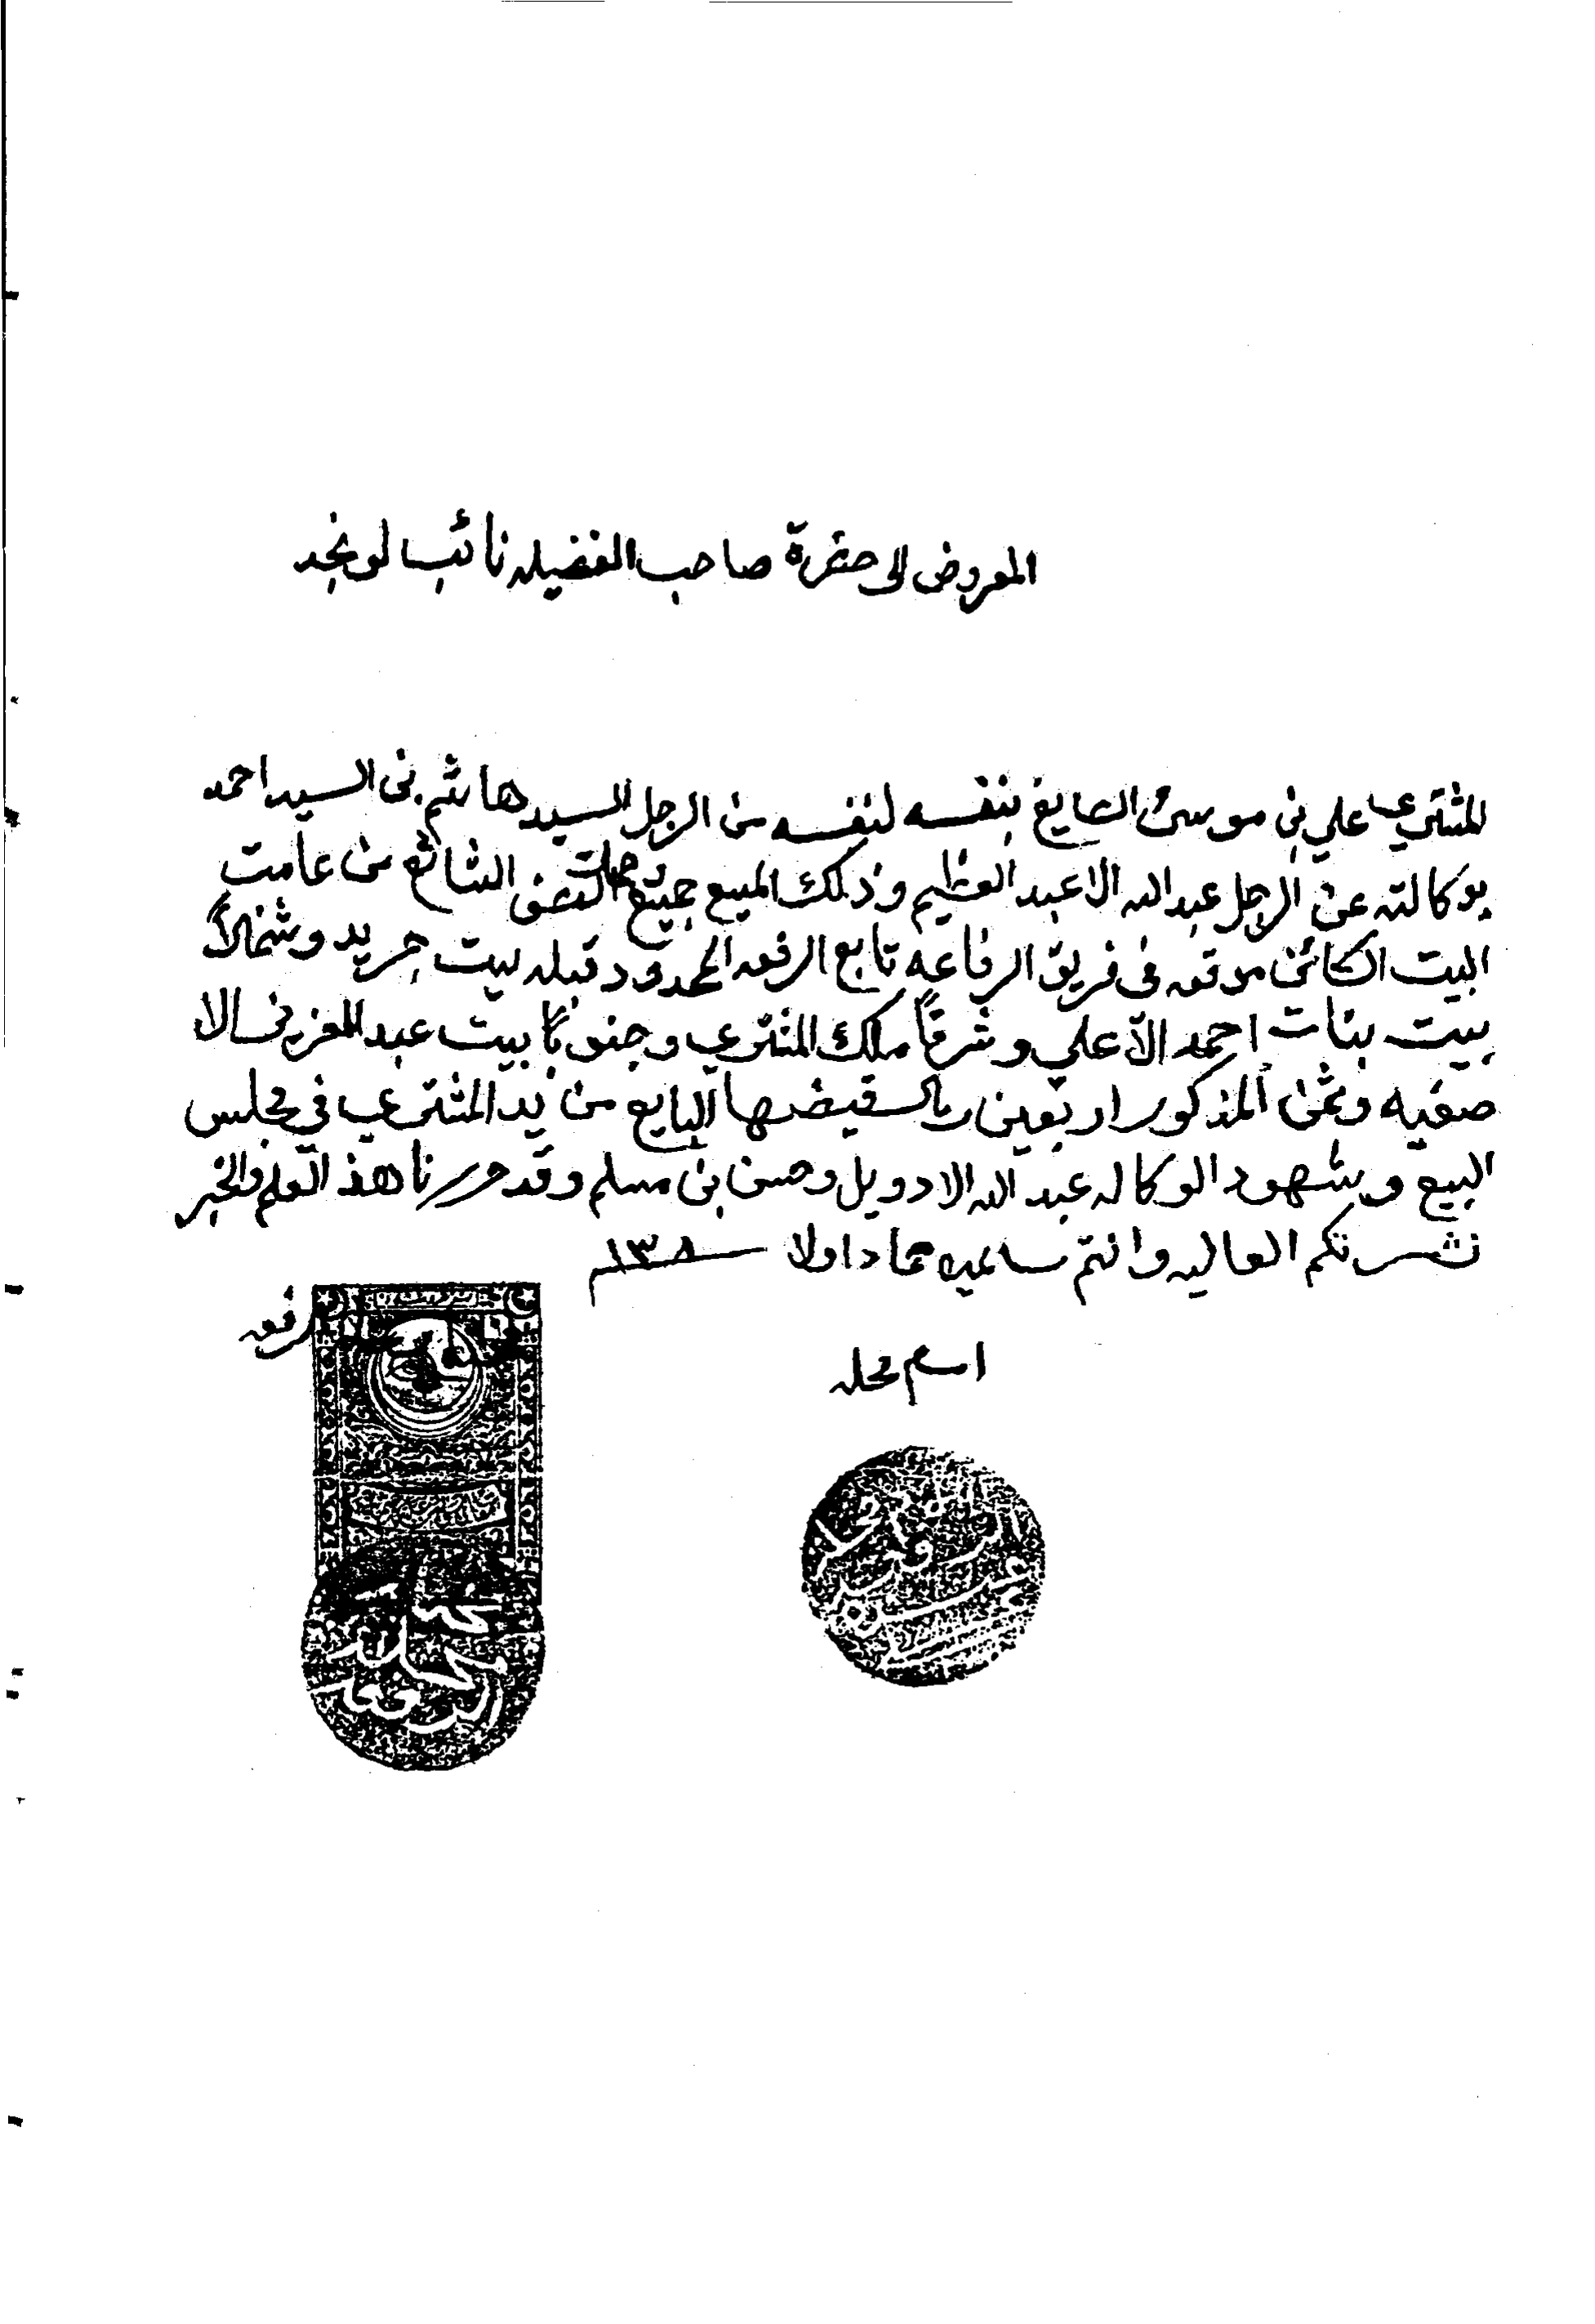 المعروض الى حضرة صاحب الفضيله نائب لو نجد
المشتري علي بن موسى الصايغ بنفسه لنفسه من الرجل السيد هاشم بن السيد احمد
بوكالته عن الرجل عبد الله الا عبد العظيم وذلك المبيع جميع وجملت النصف الشائع من عامت
البيت الكائن موقعه في فريق الرفاعه تابع الرفعه المحدود قبله بيت جريد وشمالاً
بيت بنات احمد الا علي وشرقاً ملك المشتري وجنوباً بيت عبد العزيز الا
صفيه وثمن المذكور اربعين ريال قبضها البايع من يد المشتري في مجلس
البيع وشهود الوكاله عبد الله الا دويل وحسن بن مسلم وقد حررنا هذ العلم والخبر
العاليه وانتم سالمين جماد اولا ١٣٨
اسم محله
رفعه